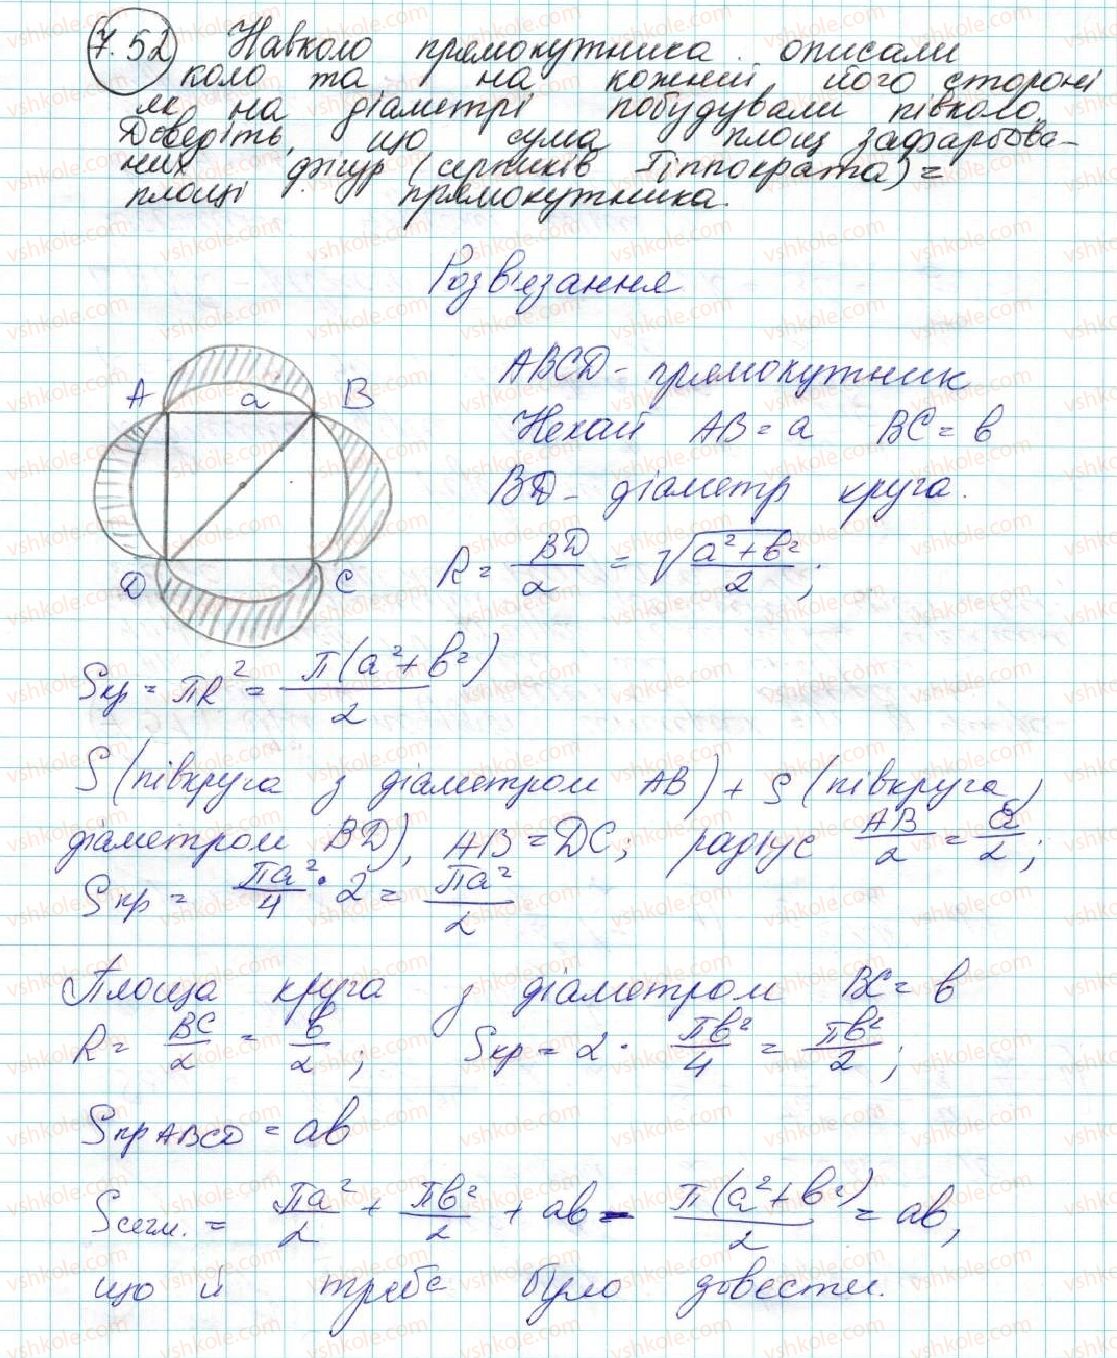 7.52 Навколо прямокутника описали
коло та на кожній його стороні
як на діаметрі побудували півколо.
Доведіть, що сума площ зафарбова-
них фігур (серпиків Гіппократа) =
площі прямокутника.
Розв'язання
A a B
D C
ABCD - прямокутник
Нехай AB = a BC = b
BD - діаметр круга.
R = BD/2 = √(a²+b²)/2;
Sкр = πR² = π(a²+b²)/2
S (півкруга з діаметром AB) + S (півкруга
діаметром BD), AB = DC; радіус AB/2 = a/2;
Sкр = πa²/4 · 2 = πa²/2
Площа круга з діаметром BC = b
R = BC/2 = b/2; Sкр = 2 · πb²/4 = πb²/2;
Sпр ABCD = ab
Sсегм. = πa²/2 + πb²/2 + ab - π(a²+b²)/2 = ab,
що й треба було довести.